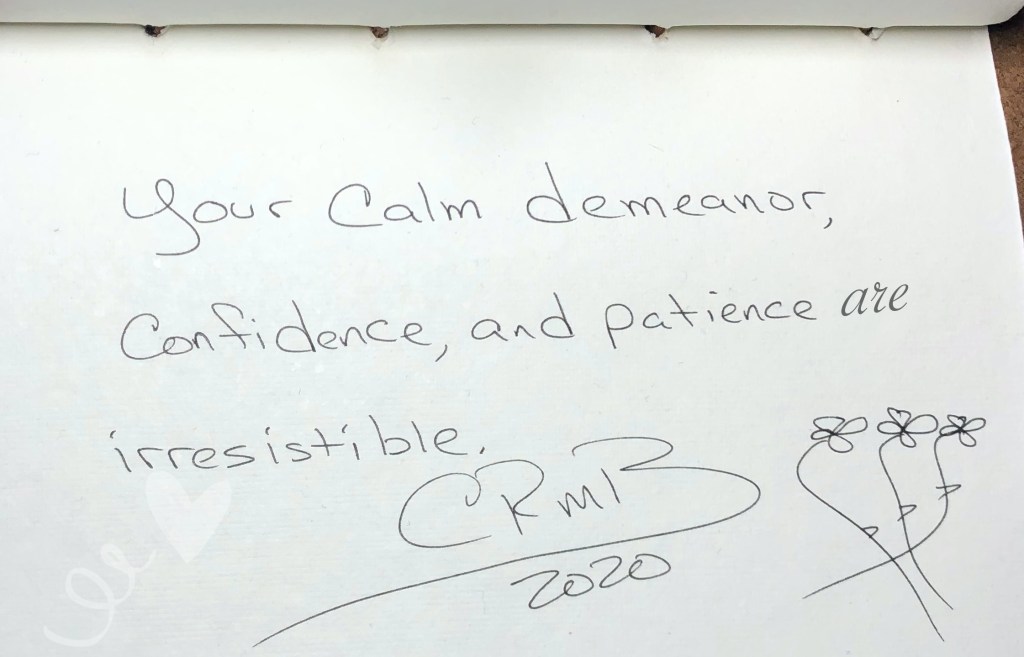 Your Calm demeanor,
Confidence, and patience are
irresistible.
CRMB
2020